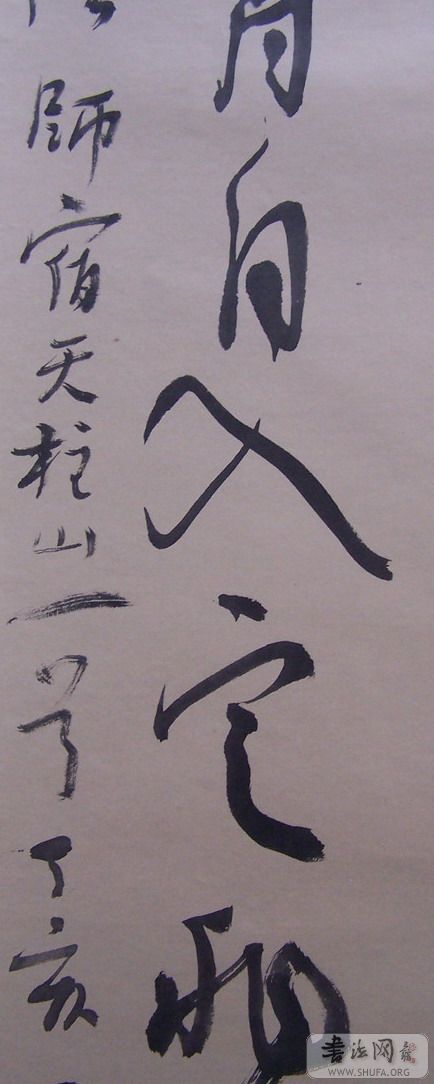 自入定
師宿天柱山一首丁亥
書法网
WWW.SHUFA.ORG